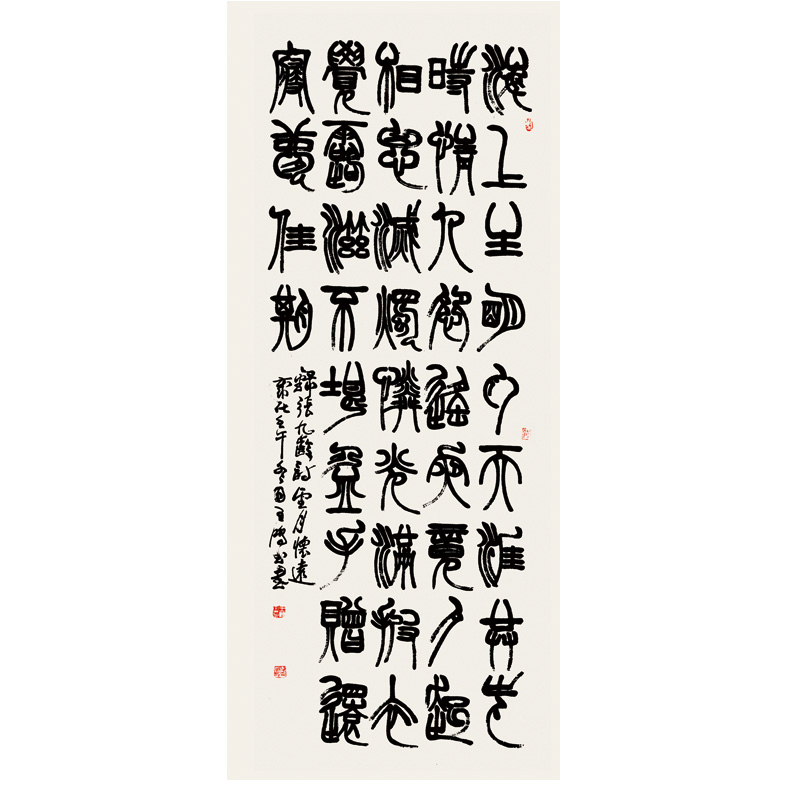 海上生明月天涯共此
時情人怨遙夜竟夕起
相思滅燭憐光滿披衣
覺露滋不堪盈手贈還
寢夢佳期
錄張九齡詩望月懷遠
歲在壬午